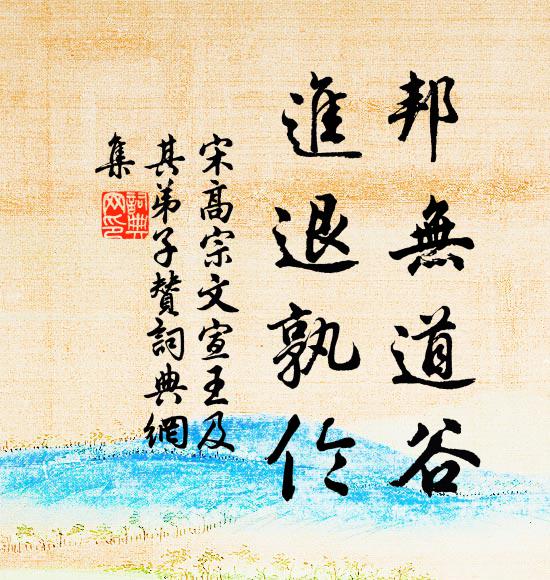 邦無道谷
進退孰
宋高宗文宣王及
其弟子贊詞典網
集
詞典
网印